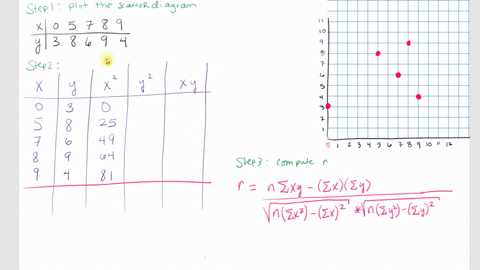 Step 1: plot the scatter diagram
x 0 5 7 8 9
y 3 8 6 9 4
Step 2:
x y x² y² xy
0 3 0
5 8 25
7 6 49
8 9 64
9 4 81
11
10
9
8
7
6
5
4
3
2
1
0 1 2 3 4 5 6 7 8 9 10 11 12
Step 3: compute r
r = n Σxy - (Σx)(Σy)
√n(Σx²) - (Σx)² * √n(Σy²) - (Σy)²